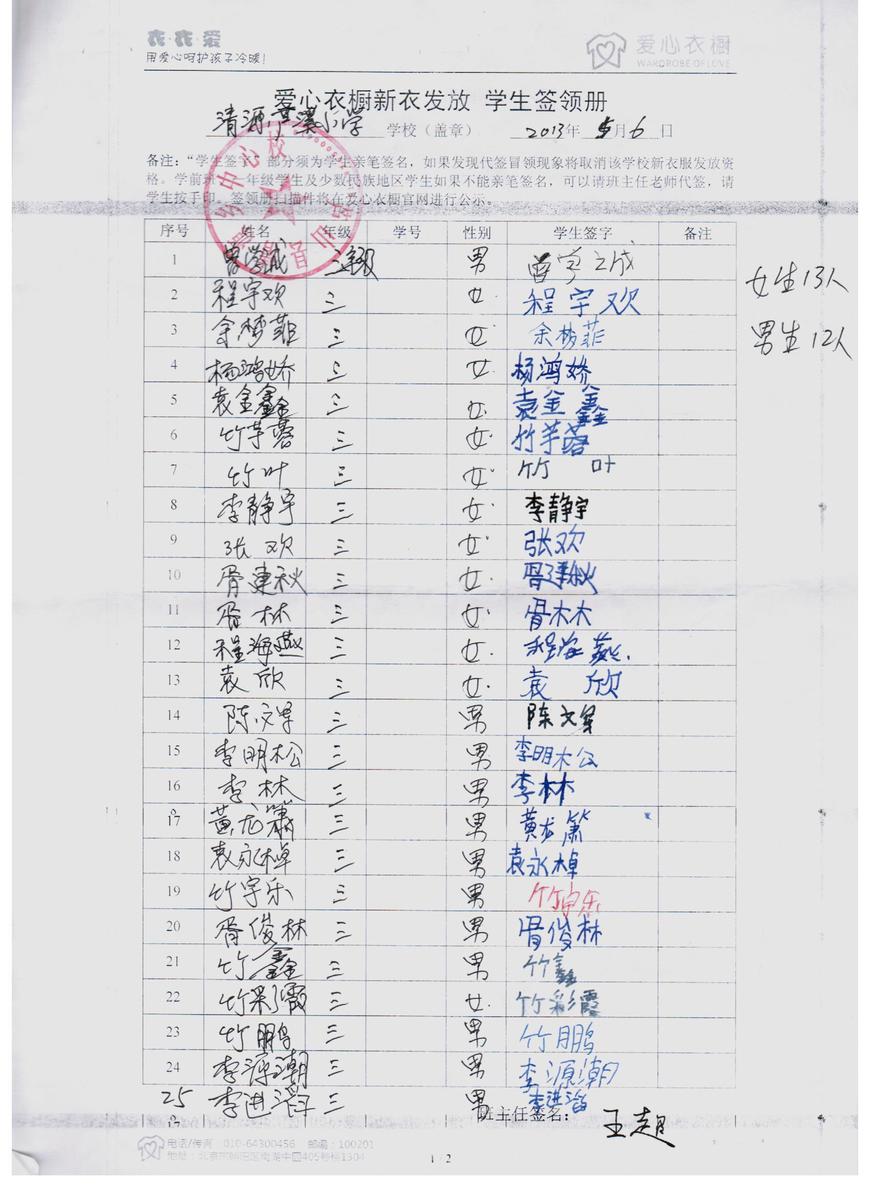 衣·衣·爱
用爱心呵护孩子冷暖!
爱心衣橱
WARDROBE OF LOVE
爱心衣橱新衣发放 学生签领册
清源 小学 学校（盖章） 2013年 5月 6 日
备注：“学生签字”部分须为学生亲笔签名，如果发现代签冒领现象将取消该学校新衣服发放资
格。学前班、一年级学生及少数民族地区学生如果不能亲笔签名，可以请班主任老师代签，请
学生按手印。签领册扫描件将在爱心衣橱官网进行公示。
序号 姓名 年级 学号 性别 学生签字 备注
1 曾学成 三年级 男 曾学之成
2 程宇欢 三 女 程宇欢
3 余梦菲 三 女 余梦菲
4 杨鸿娇 三 女 杨鸿娇
5 袁金鑫 三 女 袁金鑫
6 竹芋蓉 三 女 竹芋蓉
7 竹叶 三 女 竹叶
8 李静宇 三 女 李静宇
9 张欢 三 女 张欢
10 胥建秋 三 女 胥建秋
11 胥林 三 女 胥木木
12 程海燕 三 女 程海燕
13 袁欣 三 女 袁欣
14 陈文军 三 男 陈文军
15 李明松 三 男 李明木公
16 李林 三 男 李林
17 黄龙箫 三 男 黄龙箫
18 袁永棹 三 男 袁永棹
19 竹宇乐 三 男 竹宇乐
20 胥俊林 三 男 胥俊林
21 竹鑫 三 男 竹鑫
22 竹彩霞 三 女 竹彩霞
23 竹鹏 三 男 竹鹏
24 李源潮 三 男 李源潮
25 李进滔 三 男 李进滔
女生13人
男生12人
班主任签名： 王超
电话/传真 010-64300456 邮编：100201
地址：北京市朝阳区南湖中园405号楼1304
1 / 2